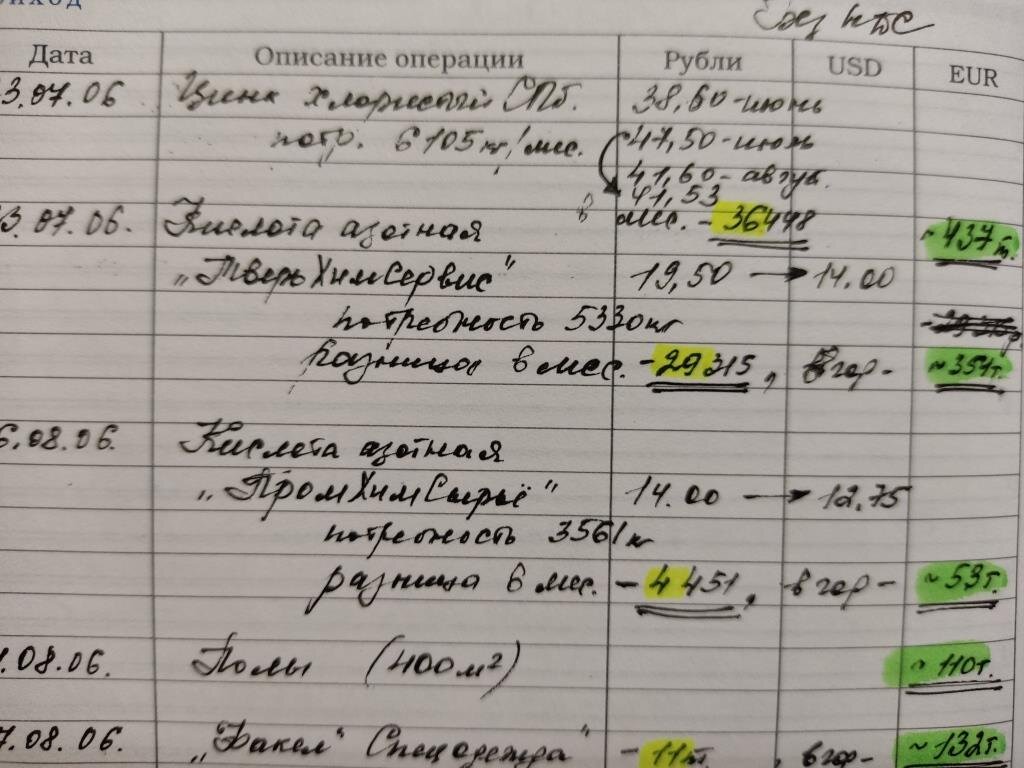 иход
без НДС
Дата Описание операции Рубли USD EUR
3.07.06 Цинк хлористый СПб. 38,60-июнь
потр. 6105 кг/мес. 47,50-июнь
41,60-август
41,53
3.07.06. Кислота азотная в мес. - 36498 ~437т.
"ТверьХимСервис" 19,50 → 14.00
потребность 5330кг
Разница в мес. -29315, в год - ~351т.
6.08.06. Кислота азотная
"ПромХимСырьё" 14.00 → 12.75
потребность 3561 кг
разница в мес. - 4451, в год - ~53т.
.08.06. Полы (400м²) ~110т.
7.08.06. "Факел" Спецодежда" - 11т. , в год - ~132т.